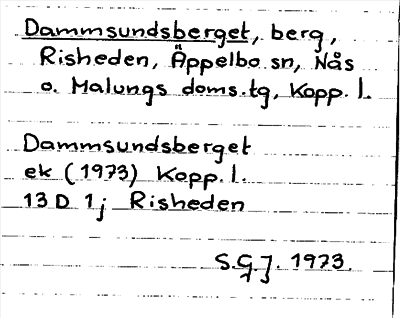 Dammsundsberget, berg,
Risheden, Äppelbo sn, Nås
o. Malungs doms.tg, Kopp. l.
Dammsundsberget
ek (1973) Kopp. l.
13 D 1j Risheden
S.G.J. 1973